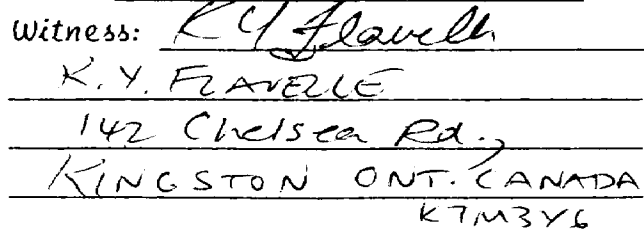 Witness: KY Flavelle
K.Y. FLAVELLE
142 Chelsea Rd.,
KINGSTON ONT. CANADA
K7M3Y6